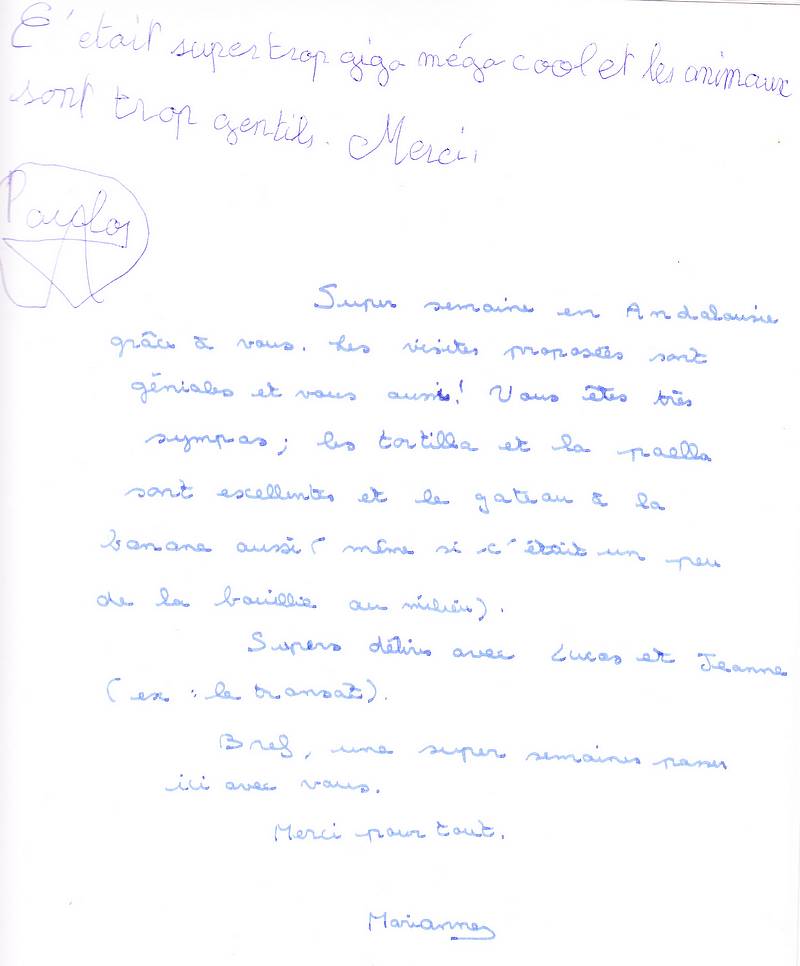 C'était super trop giga méga cool et les animaux
sont trop gentils. Merci.
Super semaine en Andalousie
grâce à vous. Les visites proposées sont
géniales et vous aussi! Vous êtes très
sympas; les tortilla et la paella
sont excellentes et le gateau à la
banane aussi (même si c'était un peu
de la bouillie au milieu).
Supers délires avec Lucas et Jeanne
(ex : le transat).
Bref, une super semaines passer
ici avec vous.
Merci pour tout.
Marianne